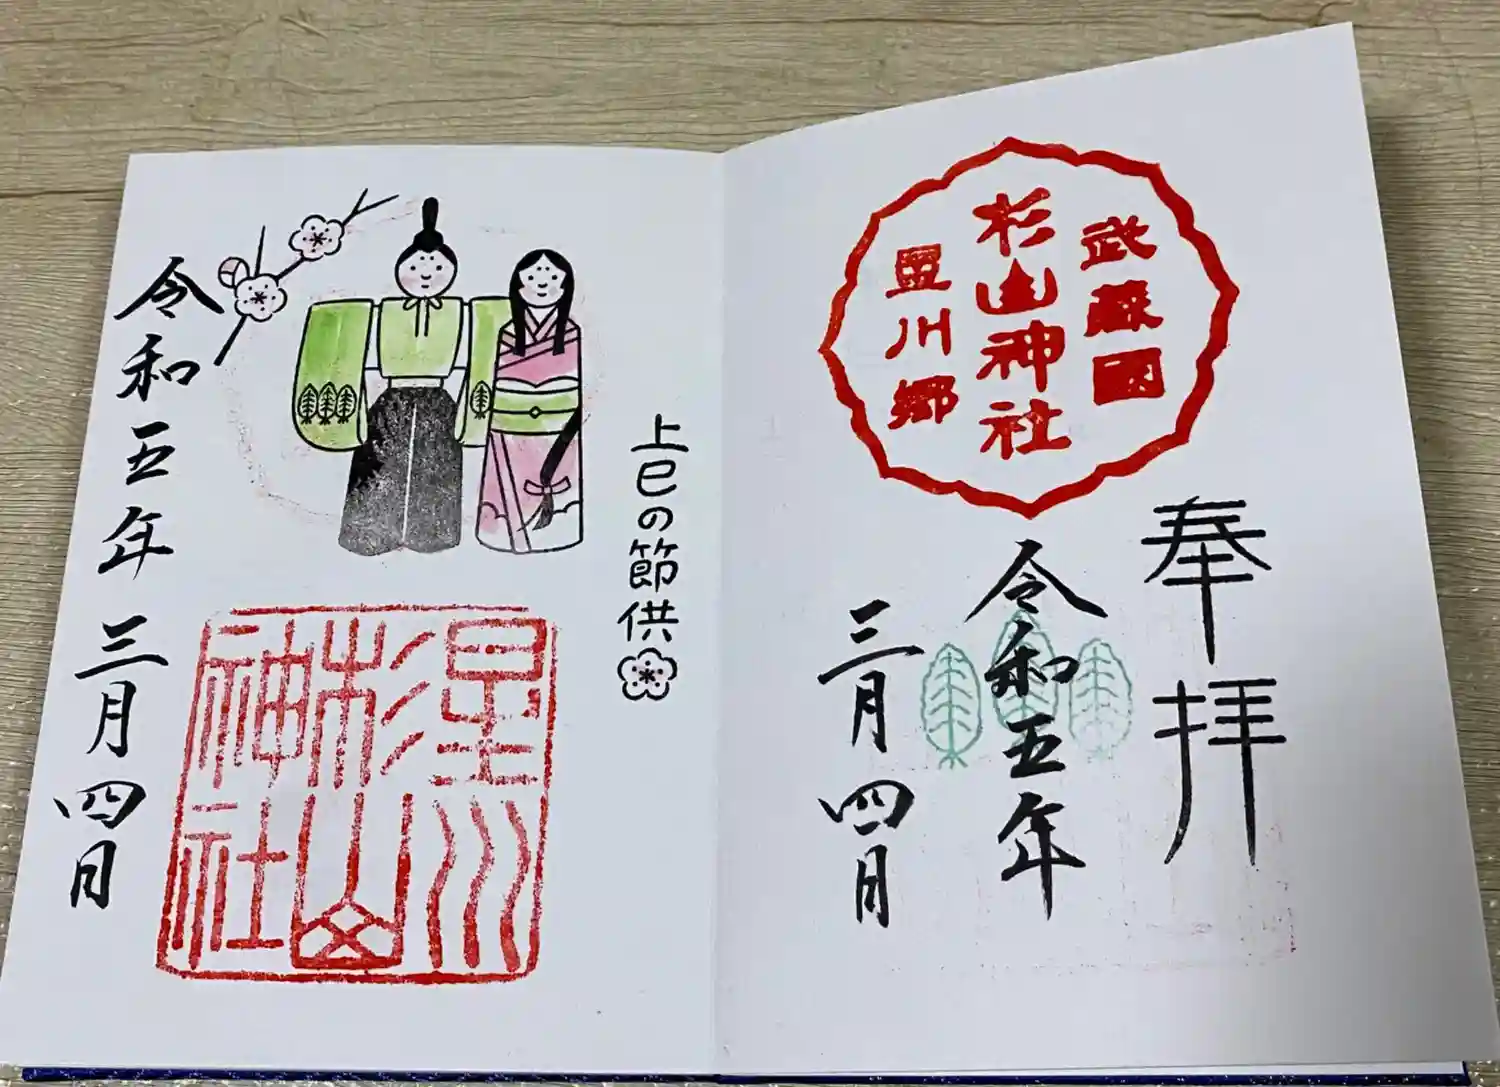 奉拝
武蔵國
杉山神社
星川郷
令和五年
三月四日
上巳の節供
星川
杉山
神社
令和五年三月四日